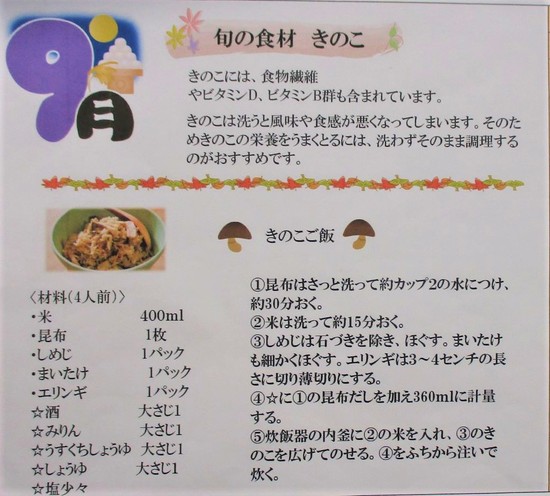 9月
旬の食材 きのこ
きのこには、食物繊維
やビタミンD、ビタミンB群も含まれています。
きのこは洗うと風味や食感が悪くなってしまいます。そのた
めきのこの栄養をうまくとるには、洗わずそのまま調理する
のがおすすめです。
きのこご飯
〈材料(4人前)〉
・米 400ml
・昆布 1枚
・しめじ 1パック
・まいたけ 1パック
・エリンギ 1パック
☆酒 大さじ1
☆みりん 大さじ1
☆うすくちしょうゆ 大さじ1
☆しょうゆ 大さじ1
☆塩少々
①昆布はさっと洗って約カップ2の水につけ、
約30分おく。
②米は洗って約15分おく。
③しめじは石づきを除き、ほぐす。まいたけ
も細かくほぐす。エリンギは3～4センチの長
さに切り薄切りにする。
④☆に①の昆布だしを加え360mlに計量
する。
⑤炊飯器の内釜に②の米を入れ、③のき
のこを広げてのせる。④をふちから注いで
炊く。